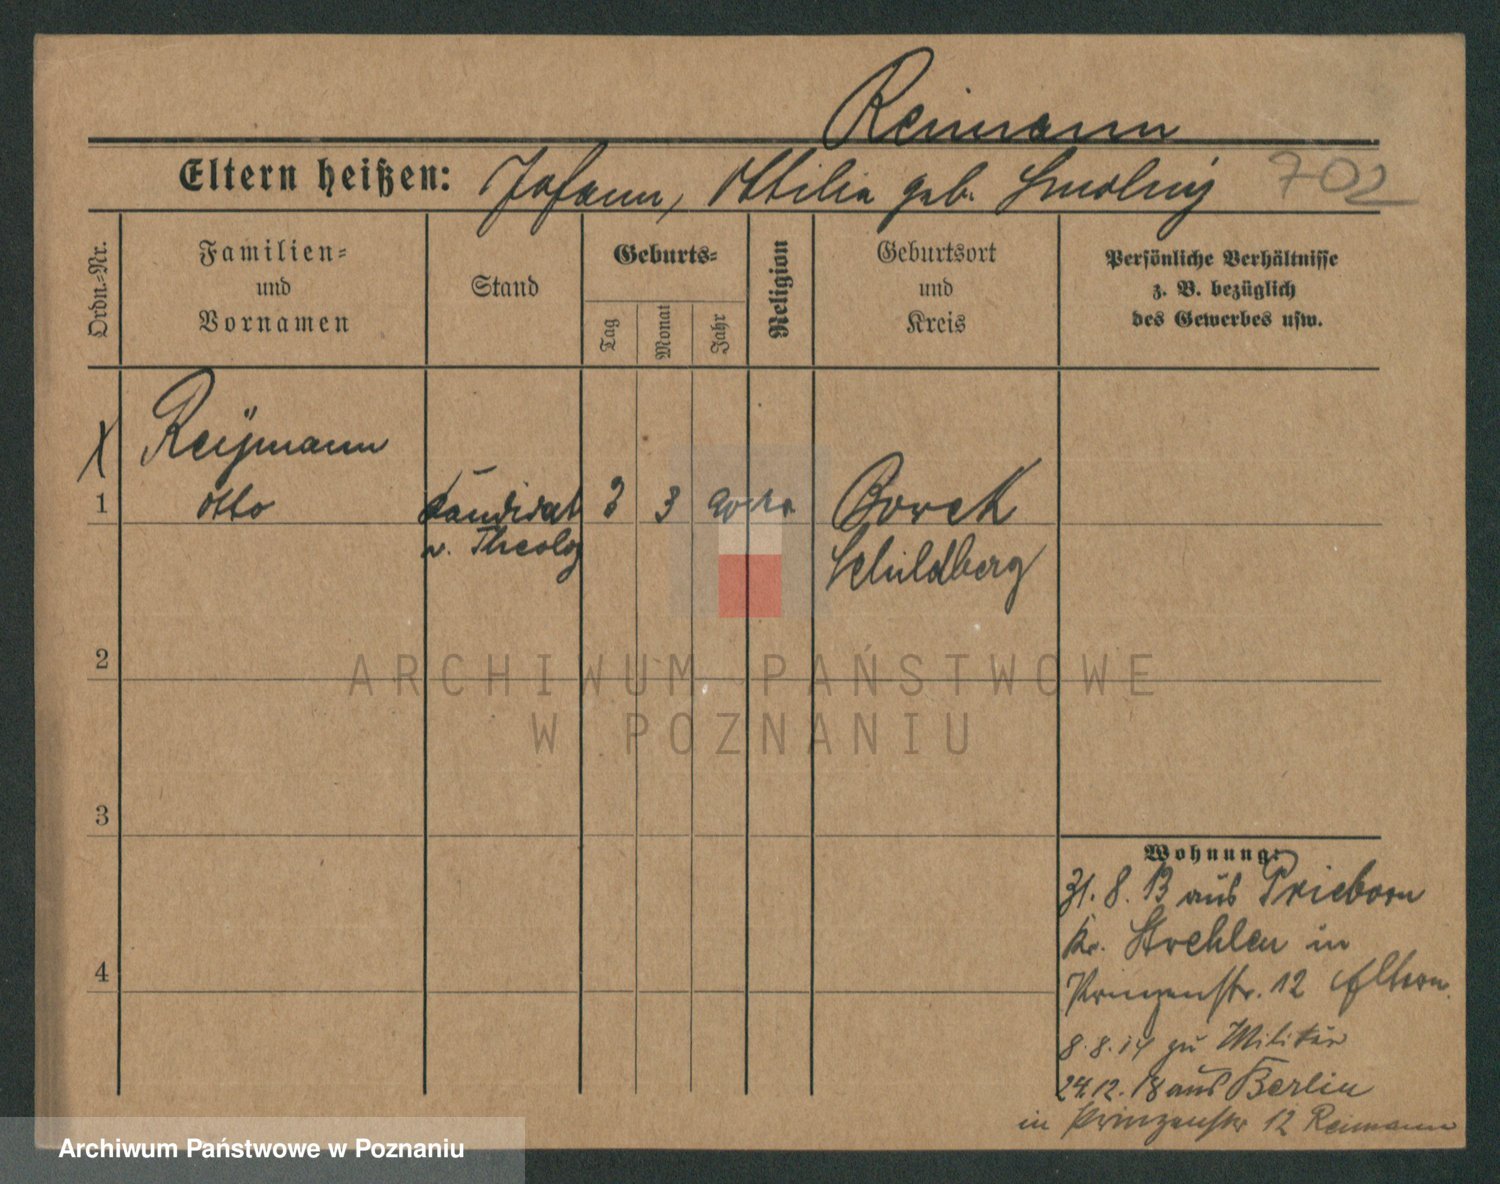 Reimann
Eltern heißen: Johann, Ottilie geb. 702
Ordn.-Nr.
Familien-
und
Vornamen
Stand
Geburts-
Tag
Monat
Jahr
Religion
Geburtsort
und
Kreis
Persönliche Verhältnisse
z. B. bezüglich
des Gewerbes usw.
Reijmann
1 Otto Kandidat 3 Borek
v. Theolog Schildberg
2
3
4
Wohnung:
31. 8. 13 aus Prieborn
Kr. Strehlen in
Prinzenstr. 12 Eltern
8.8.14 zu Militär
24.12.18 aus Berlin
in Prinzenstr 12 Reimann
ARCHIWUM PAŃSTWOWE
W POZNANIU
Archiwum Państwowe w Poznaniu